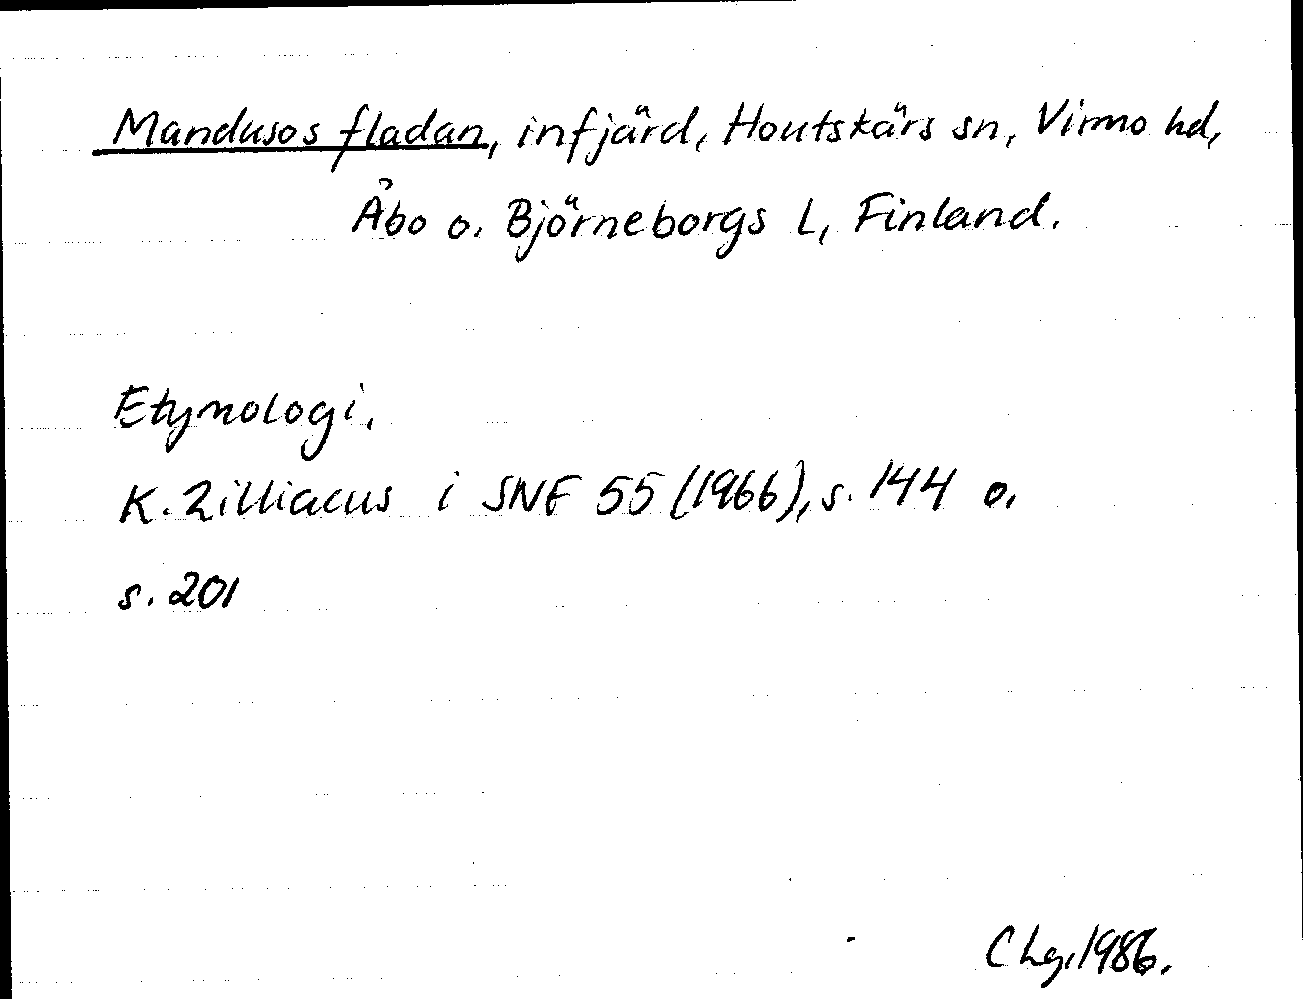 Mandusos fladan, infjärd, Houtskärs sn, Virmo hd,
Åbo o. Björneborgs l, Finland.
Etymologi.
K. Zilliacus i SNF 55 (1966), s. 144 o.
s. 201
C Lg. 1986.